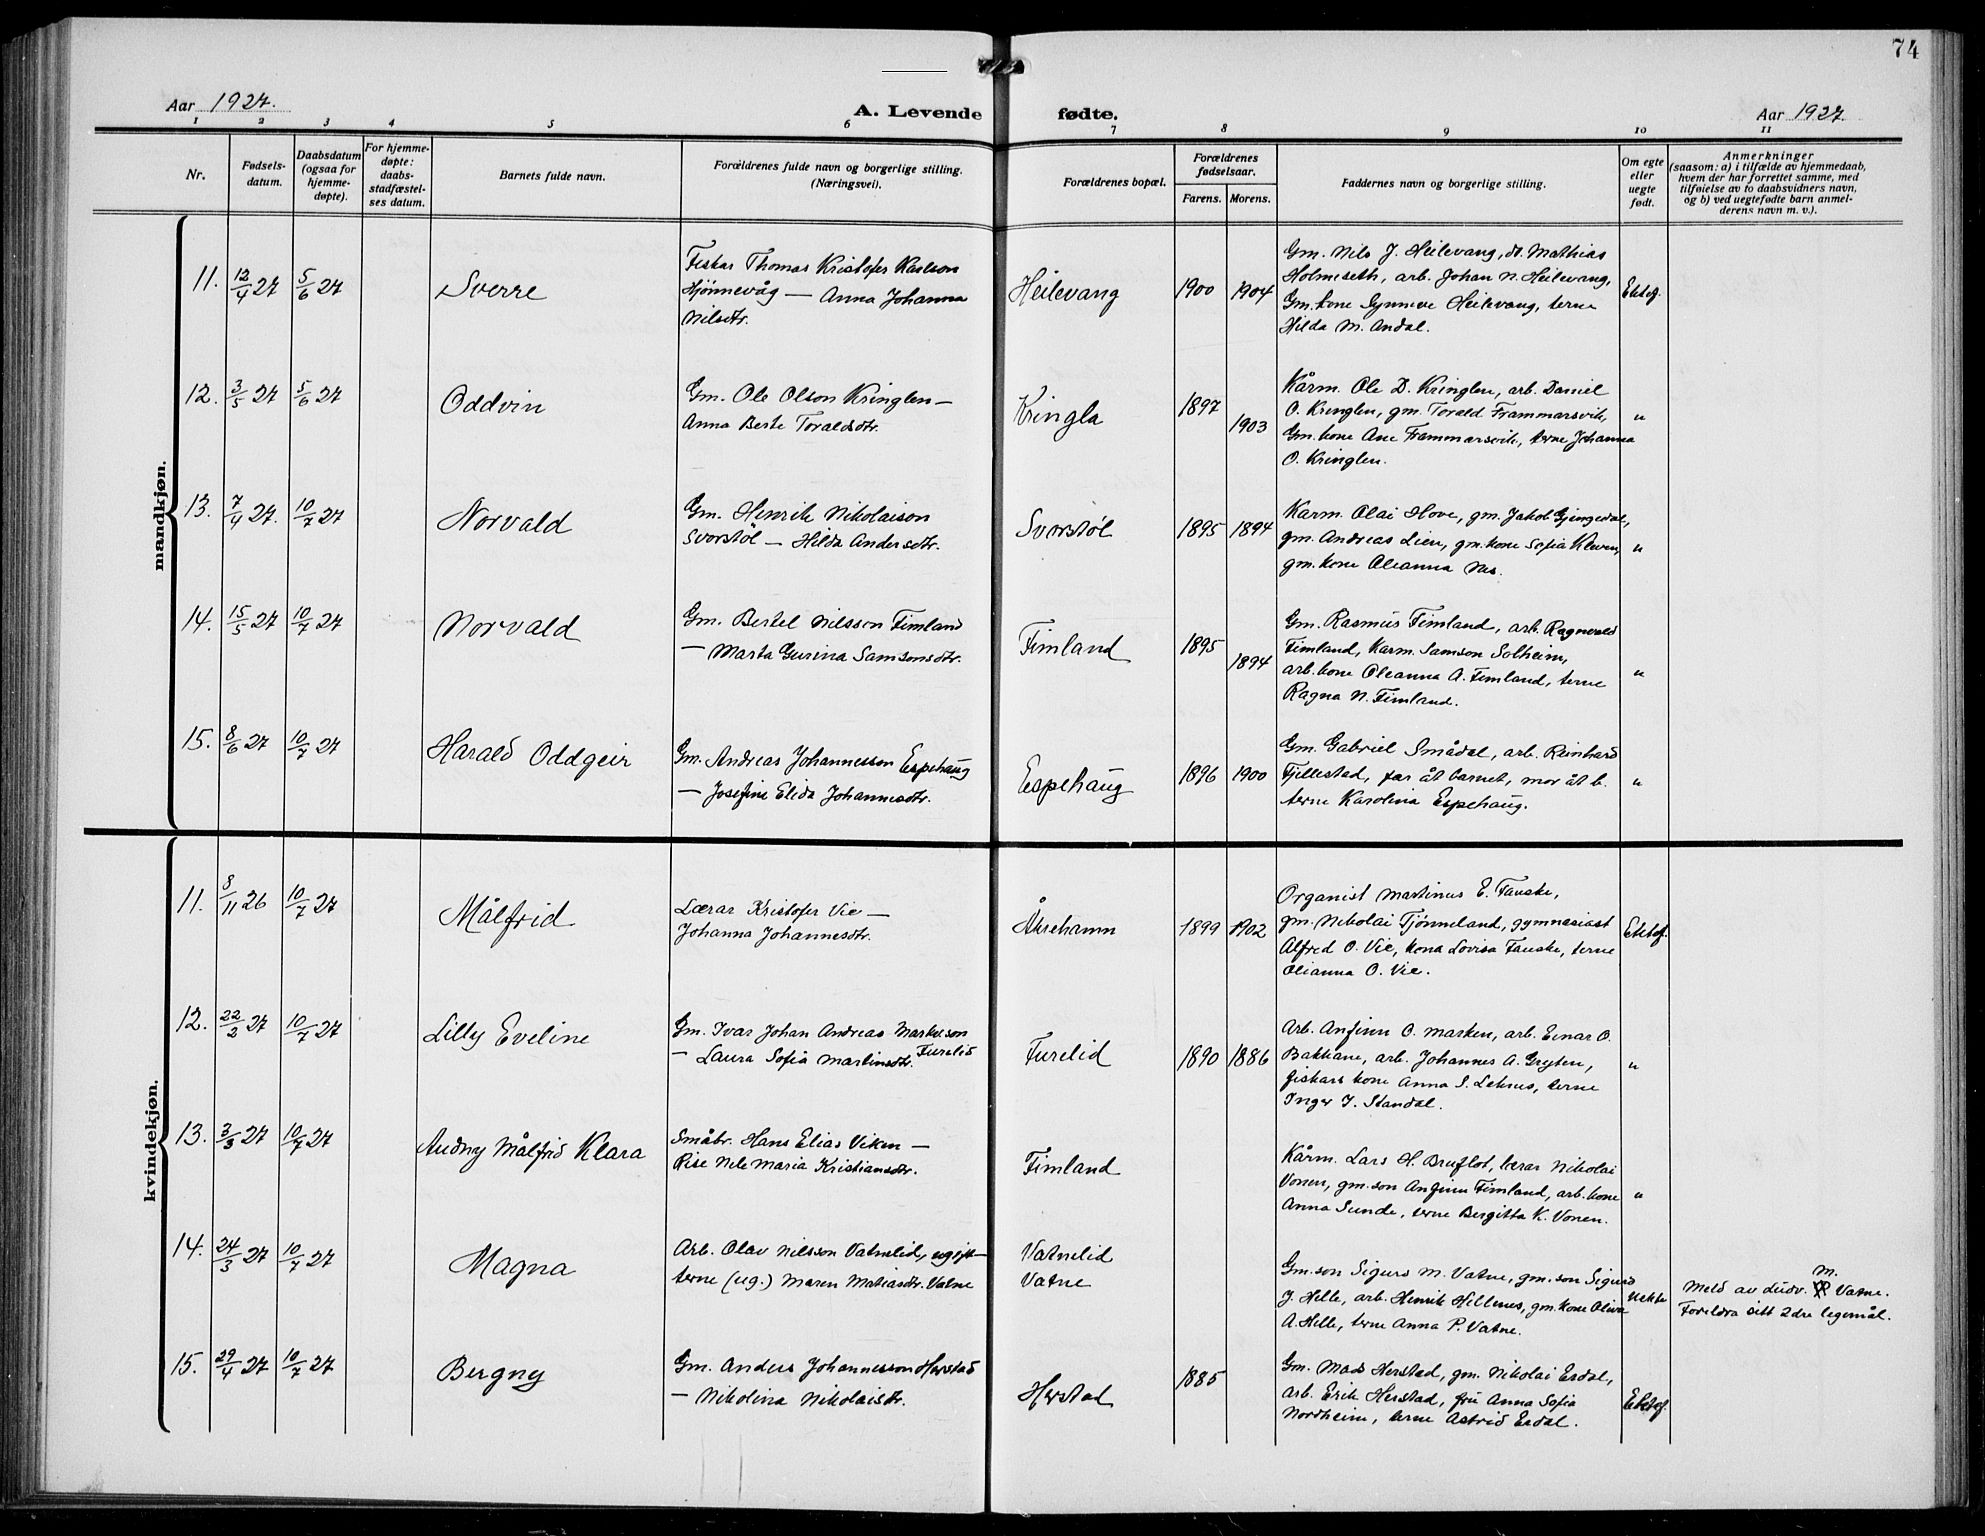 74
Aar 1927.
A. Levende fødte.
Aar 1927.
1 2 3 4 5 6 7 8 9 10 11
Nr.
Fødsels-
datum.
Daabsdatum
(ogsaa for
hjemme-
døpte).
For hjemme-
døpte:
daabs-
stadfæstel-
ses datum.
Barnets fulde navn.
Forældrenes fulde navn og borgerlige stilling.
(Næringsvei).
Forældrenes bopæl.
Forældrenes
fødselsaar.
Farens. Morens.
Faddernes navn og borgerlige stilling.
Om egte
eller
uegte
født.
Anmerkninger
(saasom: a) i tilfælde av hjemmedaab,
hvem der har forrettet samme, med
tilføielse av to daabsvidners navn,
og b) ved uegtefødte barn anmel-
derens navn m. v.).
mandkjøn.
11. 12/4 27 5/6 27 Sverre
Fiskar Thomas Kristofer Karlson
Hjønnevåg — Anna Johanna
Nilsdtr.
Heilevang 1900 1904
Gm. Nils J. Heilevang, Mathias
Holmeseth, arb. Johan N. Heilevang,
Gm. kone Synneve Heilevang, terne
Hilda M. Andal.
Ektef.
12. 3/5 27 5/6 27 Oddvin
Gm. Ole Olson Kringlen —
Anna Berte Toraldsdtr.
Kringla 1897 1903
Kårm. Ole D. Kringlen, arb. Daniel
O. Kringlen, gm. Torald Frammarsvik,
Gm. kone Ane Frammarsvik, terne Johanna
O. Kringlen.
"
13. 7/4 27. 10/7 27 Norvald
Gm. Henrik Nikolaison
Svorstøl — Hilda Andersdtr.
Svorstøl 1895 1894
Karm. Olai Hove, gm. Jakob Gjengedal,
gm. Andreas Lien, gm. kone Sofia Kleven,
gm. kone Oleanna Nes.
"
14. 15/5 27 10/7 27 Norvald
Gm. Bertel Nilsson Fimland
— Marta Gurina Samsonsdtr.
Fimland 1895 1894
Gm. Rasmus Fimland, arb. Ragnvald
Fimland, Karm. Samson Solheim,
arb. kone Oleanna A. Fimland, terne
Ragna N. Fimland.
"
15. 8/6 27 10/7 27 Harald Oddgeir
Gm. Andreas Johannesson Espehaug
— Josefine Elida Johannesdtr.
Espehaug 1896 1900
Gm. Gabriel Smådal, arb. Reinhard
Fjellestad, far åt barnet, mor åt b.
terne Karolina Espehaug.
"
kvindekjøn.
11. 8/11 26 10/7 27 Målfrid
Lærar Kristofer Vie —
Johanna Johannesdtr.
Åkrehamn 1899 1902
Organist Martinus E. Fauske,
gm. Nikolai Tjønneland, gymnasiast
Alfred O. Vie, kona Lovisa Fauske, terne
Olianna O. Vie.
Ektef.
12. 22/2 27 10/7 27 Lilly Eveline
Gm. Ivar Johan Andreas Markusson
— Laura Sofia Martinsdtr. Furelid
Furelid 1890 1886
Arb. Anfinn O. Marken, arb. Einar O.
Bakkane, arb. Johannes A. Gryten,
fiskars kone Anna S. Leknes, terne
Inger J. Standal.
"
13. 3/3 27 10/7 27 Audny Målfrid Klara
Småbr. Hans Elias Viken —
Pise Nele Maria Kristiansdtr.
Fimland
Kårm. Lars H. Bruflot, lærar Nikolai
Vonen, gm. son Anfinn Fimland, arb. kone
Anna Sunde, terne Bergitta K. Vonen.
"
14. 24/3 27 10/7 27 Magna
Arb. Olav Nilsson Vatnelid, ugift —
terne (ug.) Maren Matiasdtr. Vatne
Vatnelid
Vatne
Gm. son Sigurd M. Vatne, gm. son Sigurd
J. Helle, arb. Henrik Hellenes, gm. kone Oliva
A. Helle, terne Anna P. Vatne.
Uekte
M.
Meld av Ludv. Vatne.
Foreldra sitt 2dre legemål.
15. 29/4 27 10/7 27 Bergny
Gm. Anders Johannesson Herstad
— Nikolina Nikolaisdtr.
Herstad 1885
Gm. Mads Herstad, gm. Nikolai Erdal,
arb. Erik Herstad, fru Anna Sofia
Nordheim, terne Astrid Erdal.
Ektef.